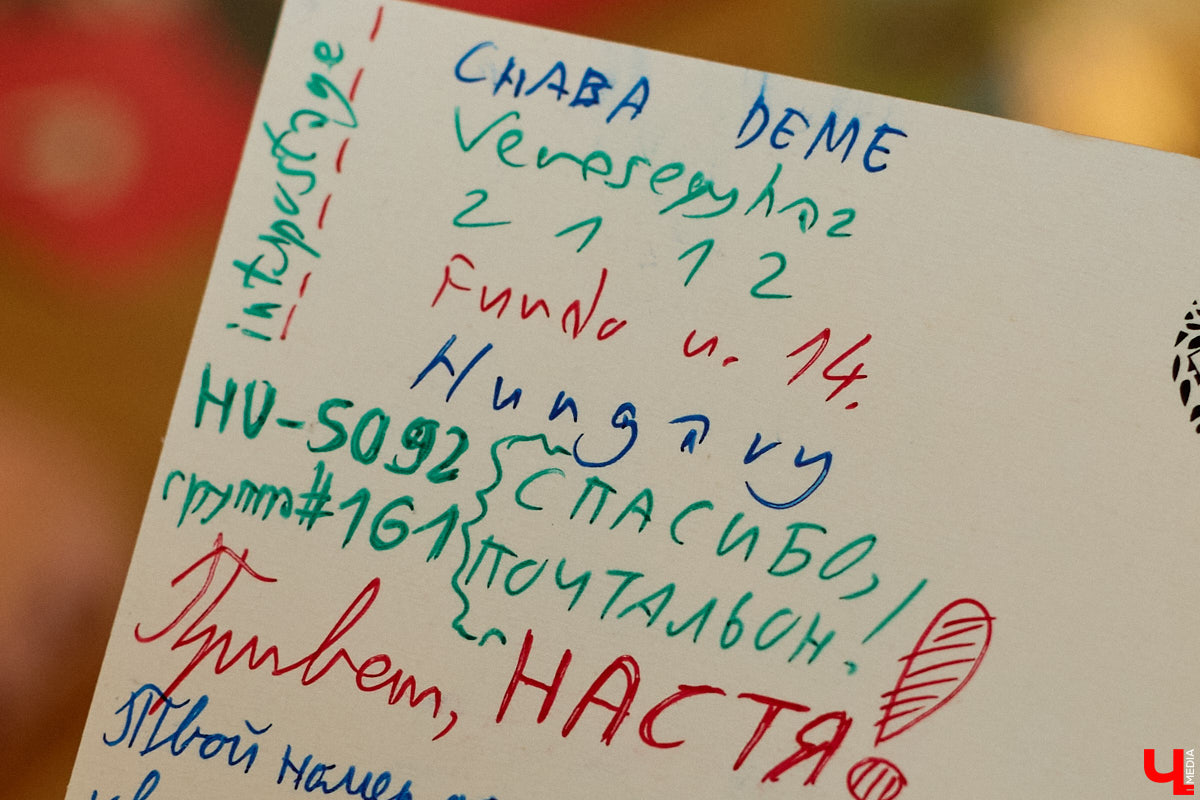 intspostage
CHABA DEME
Veresegyhaz
2 1 1 2
Fundo u. 14.
Hungary
HU-5092
группа #161
СПАСИБО,
ПОЧТАЛЬОН!
Привет, НАСТЯ!
Твой номер
Ч MEDIA